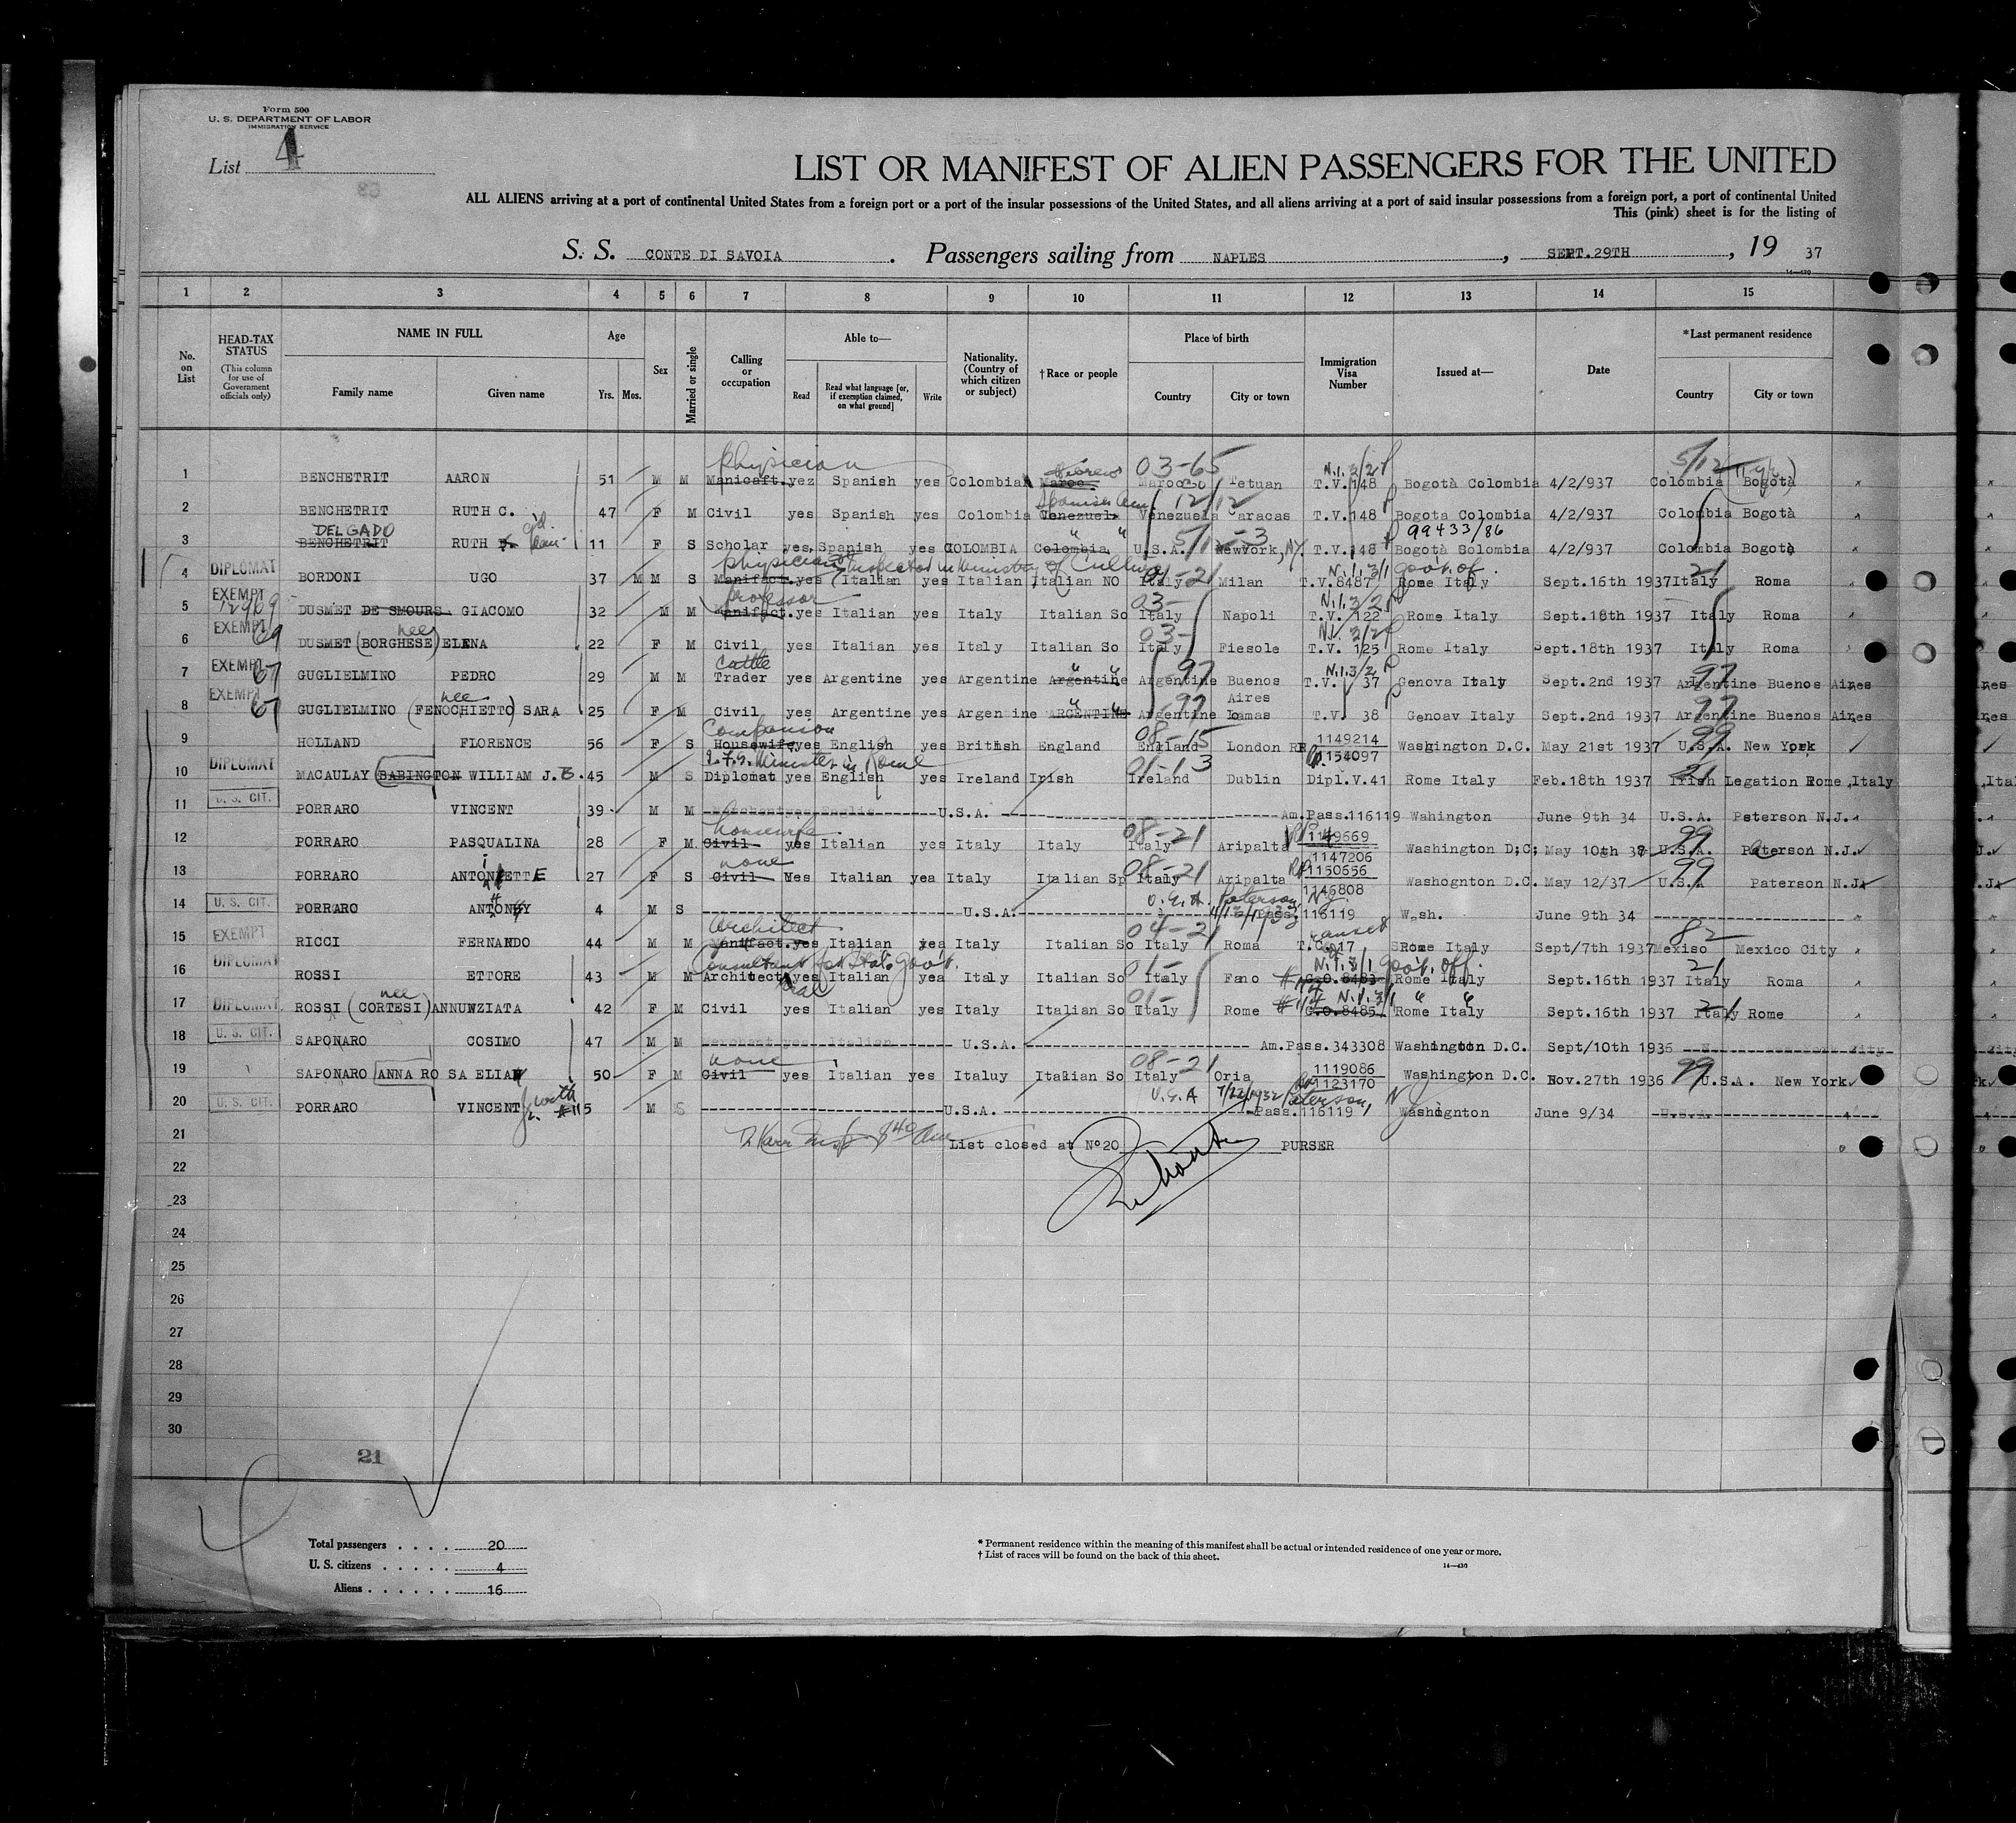 Form 500
U. S. DEPARTMENT OF LABOR
IMMIGRATION SERVICE
List 4
LIST OR MANIFEST OF ALIEN PASSENGERS FOR THE UNITED
ALL ALIENS arriving at a port of continental United States from a foreign port or a port of the insular possessions of the United States, and all aliens arriving at a port of said insular possessions from a foreign port, a port of continental United
This (pink) sheet is for the listing of
S. S. CONTE DI SAVOIA. Passengers sailing from NAPLES, SEPT.29TH, 19 37
14—430
1 2 3 4 5 6 7 8 9 10 11 12 13 14 15
No. on List
HEAD-TAX STATUS (This column for use of Government officials only)
NAME IN FULL Family name Given name
Age Yrs. Mos.
Sex
Married or single
Calling or occupation
Able to— Read Read what language [or, if exemption claimed, on what ground] Write
Nationality. (Country of which citizen or subject)
†Race or people
Place of birth Country City or town
Immigration Visa Number
Issued at—
Date
*Last permanent residence Country City or town
physician Hebrew 03-65 N.1.3/2 5/12
1 BENCHETRIT AARON 51 M M Manicaft. yez Spanish yes Colombia Maroc. Marocco Tetuan T.V.148 Bogotà Colombia 4/2/937 Colombia Bogotà
12/12
2 BENCHETRIT RUTH C. 47 F M Civil yes Spanish yes Colombia Venezuel. Venezuela Caracas T.V.148 Bogota Colombia 4/2/937 Colombia Bogotà
DELGADO 99433/86
3 BENCHETRIT RUTH 11 F S Scholar yes Spanish yes COLOMBIA Colombia " U.S.A. NewYork, NY. T.V.148 Bogotà Solombia 4/2/937 Colombia Bogotà
physician Inspector in Ministry of Culture N.1.3/1 gov't. of. 21
4 DIPLOMAT BORDONI UGO 37 M M S Manifact. yes Italian yes Italian Italian NO Italy Milan T.V.8487 Rome Italy Sept.16th 1937 Italy Roma
professor 03- N.1.3/2
5 EXEMPT DUSMET DE SMOURS GIACOMO 32 M M Manifact. yes Italian yes Italy Italian So Italy Napoli T.V. 122 Rome Italy Sept.18th 1937 Italy Roma
nee 03- N.1.3/2
6 EXEMPT DUSMET (BORGHESE) ELENA 22 F M Civil yes Italian yes Italy Italian So Italy Fiesole T.V. 125 Rome Italy Sept.18th 1937 Italy Roma
Cattle " " 97 N.1.3/2 97
7 EXEMPT 67 GUGLIELMINO PEDRO 29 M M Trader yes Argentine yes Argentine Argentine Argentine Buenos Aires T.V. 37 Genova Italy Sept.2nd 1937 Argentine Buenos Aires
nee " " 97 97
8 EXEMPT 67 GUGLIELMINO (FENOCHIETTO) SARA 25 F M Civil yes Argentine yes Argentine ARGENTINE Argentine Lamas T.V. 38 Genoav Italy Sept.2nd 1937 Argentine Buenos Aires
Companion 08-15 1149214 99
9 HOLLAND FLORENCE 56 F S Housewife yes English yes British England England London RP 1154097 Washington D.C. May 21st 1937 U.S.A. New York
I.F.S. Minister in Rome 01-13 21
10 DIPLOMAT MACAULAY BABINGTON WILLIAM J.B. 45 M S Diplomat yes English yes Ireland Irish Ireland Dublin Dipl.V.41 Rome Italy Feb.18th 1937 Irish Legation Rome, Italy
11 U. S. CIT. PORRARO VINCENT 39 M M Merchant yes Englis U.S.A. Am.Pass.116119 Wahington June 9th 34 U.S.A. Peterson N.J.
housewife 08-21 99
12 PORRARO PASQUALINA 28 F M Civil yes Italian yes Italy Italy Italy Aripalta 1147206 Washington D;C; May 10th 37 U.S.A. Paterson N.J.
none 08-21 99
13 PORRARO ANTONIETTE 27 F S Civil Yes Italian yea Italy Italian Sp Italy Aripalta RP 1150556 1146808 Washognton D.C. May 12/37 U.S.A Paterson N.J.
U.S.A. Paterson N.J.
14 U. S. CIT. PORRARO ANTONY 4 M S U.S.A. Pass. 116119 Wash. June 9th 34
architect 04-21 82
15 EXEMPT RICCI FERNANDO 44 M M Manifact. yes Italian yea Italy Italian So Italy Roma T.C.017 Rome Italy Sept/7th 1937 Mexiso Mexico City
Consultant for Stat. Gov't. 01- N.1.3/1 gov't. off. 21
16 DIPLOMAT ROSSI ETTORE 43 M M Architect yes Italian yea Italy Italian So Italy Fano C.O.8483 Rome Italy Sept.16th 1937 Italy Roma
nee 01- #114 N.1.3/1 " " 21
17 DIPLOMAT ROSSI (CORTESI) ANNUNZIATA 42 F M Civil yes Italian yes Italy Italian So Italy Rome C.O.8485 Rome Italy Sept.16th 1937 Italy Rome
18 U. S. CIT. SAPONARO COSIMO 47 M M Merchant yes Italian U.S.A. Am.Pass.343308 Washington D.C. Sept/10th 1936
none 08-21 1119086 99
19 SAPONARO ANNA RO SA ELIA 50 F M Civil yes Italian yes Italuy Italian So Italy Oria 1123170 Washington D.C. Nov.27th 1936 U.S.A. New York
with U.S.A 7/22/1932 Paterson, N J
20 U. S. CIT. PORRARO VINCENT Jr. #11 5 M S U.S.A. Pass.116119 Washignton June 9/34 U.S.A.
21 List closed at N°20 PURSER
22
23
24
25
26
27
28
29
30
21
Total passengers . . . . . 20
U. S. citizens . . . . . 4
Aliens . . . . . . 16
* Permanent residence within the meaning of this manifest shall be actual or intended residence of one year or more.
† List of races will be found on the back of this sheet.
14—430